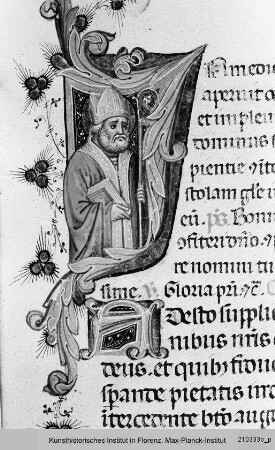 N medio
aperuit
et imple
dominus
pientie
stolam gle
eū. ps̄ Bonu
ꝯfiteri dño.
re nomini tu
sime. Gloria
Adesto supplic
nibus nr̄is
deus. et quib; fidu
sꝑande pietatis in
īt̄cedente bt̄o aug
Kunsthistorisches Institut in Florenz, Max-Planck-Institut 210333b_p